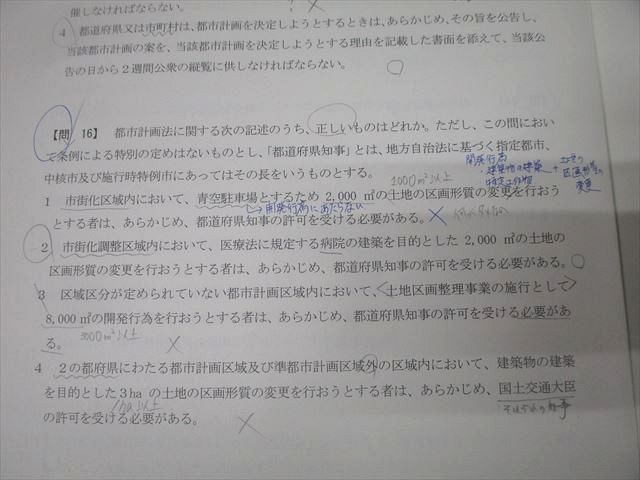 催しなければならない。
4 都道府県又は市町村は、都市計画を決定しようとするときは、あらかじめ、その旨を公告し、
当該都市計画の案を、当該都市計画を決定しようとする理由を記載した書面を添えて、当該公
告の日から2週間公衆の縦覧に供しなければならない。
【問 16】 都市計画法に関する次の記述のうち、正しいものはどれか。ただし、この問におい
て条例による特別の定めはないものとし、「都道府県知事」とは、地方自治法に基づく指定都市、
中核市及び施行時特例市にあってはその長をいうものとする。
開発行為
・建築物の建築
特定工作物
+
土地の
区画形質の
変更
1000㎡以上
1 市街化区域内において、青空駐車場とするため 2,000 ㎡の土地の区画形質の変更を行おう
→開発行為にあたらない
とする者は、あらかじめ、都道府県知事の許可を受ける必要がある。×
2 市街化調整区域内において、医療法に規定する病院の建築を目的とした 2,000 ㎡の土地の
区画形質の変更を行おうとする者は、あらかじめ、都道府県知事の許可を受ける必要がある。○
3 区域区分が定められていない都市計画区域内において、<土地区画整理事業の施行として>
8,000 ㎡の開発行為を行おうとする者は、あらかじめ、都道府県知事の許可を受ける必要があ
る。 3000㎡以上 ×
4 2の都府県にわたる都市計画区域及び準都市計画区域外の区域内において、建築物の建築
を目的とした3ha の土地の区画形質の変更を行おうとする者は、あらかじめ、国土交通大臣
1ha以上
の許可を受ける必要がある。 ×